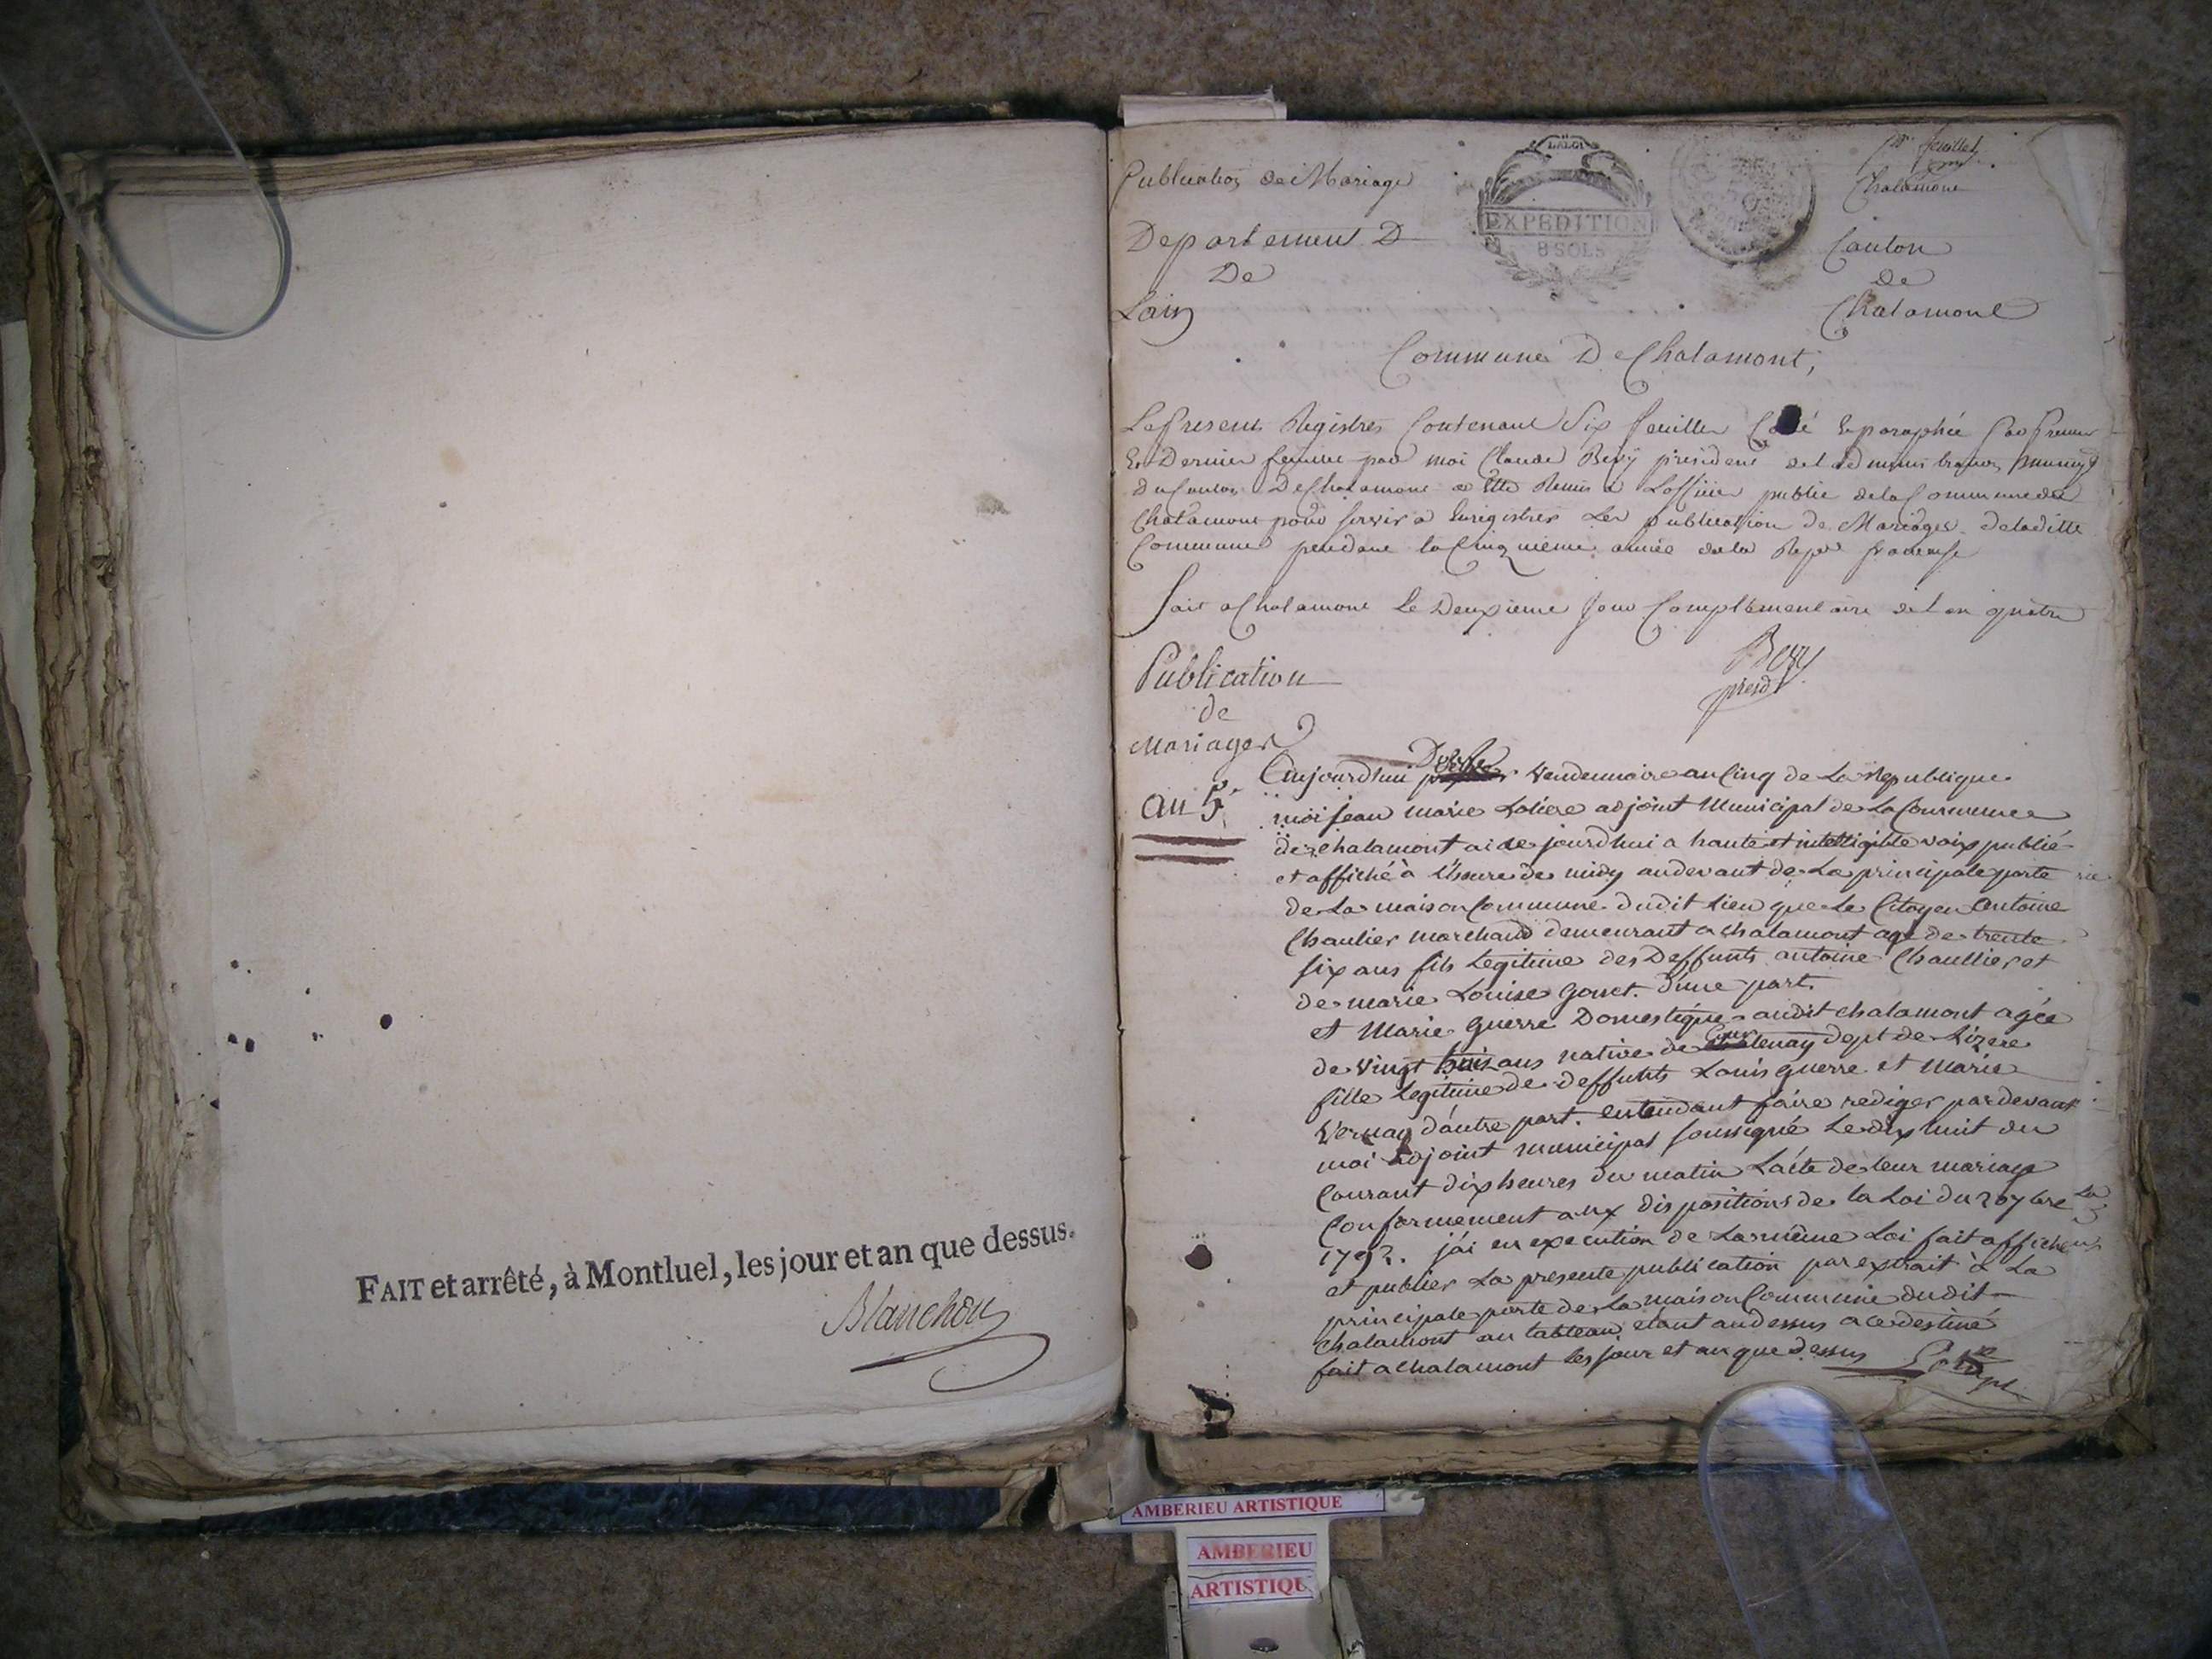 FAIT et arrêté, à Montluel, les jour et an que dessus.
Blanchon
Publication de Mariage
LA LOI
EXPEDITION
8 SOLS
feuillet
Chalamont
Departement D
De
Lain
Canton
de
Chalamont
Commune De Chalamont,
Le Present Registres Contenant Six feuillet Coté & paraphé par Premier
Et Dernier par moi Claude Bevy president de Ladministration
du Canton De Chalamont a Ette Remis a Loffisier public de la Commune de
Chalamont pour servir a Enregistrer Les publication de Mariages de laditte
Commune pendant la Cinquieme année de la Repu francaise
fait a Chalamont le Deuxieme Jour Complementaire de Lan quatre
Bevy
presdt
Publication
de
Mariages
an 5e
Aujourdhui vendemiaire an Cinq de La Republique
moi jean marie adjoint Municipal de La Commune
de chalamont ai ce jourdhui a haute et intelligible voix publié
et affiché à L'heure de midy au devant de La principale porte
de La maison Commune dudit lieu que Le Citoyen Antoine
Chaulier marchand demeurant a chalamont agé de trente
six ans fils Legitime des Deffunts antoine Chaullier et
de marie Louise gonet. d'une part.
et Marie guerre Domestique audit chalamont agée
de vingt huit ans native de dept de Lizere
fille Legitime de deffunts Louis guerre et marie
Vernay d'autre part. entendant faire rediger pardevant
moi adjoint municipal soussigné Le dix huit du
Courant dix heures du matin L'acte de leur mariage
Conformement aux dispositions de la Loi du 20 7bre
1792. j'ai en execution de La même Loi fait afficher
et publier La presente publication par extrait à La
principale porte de La maison Commune dudit
chalamont au tableau étant au dessus a ce destiné
fait a Chalamont les jour et an que dessus
AMBERIEU ARTISTIQUE
AMBERIEU
ARTISTIQU